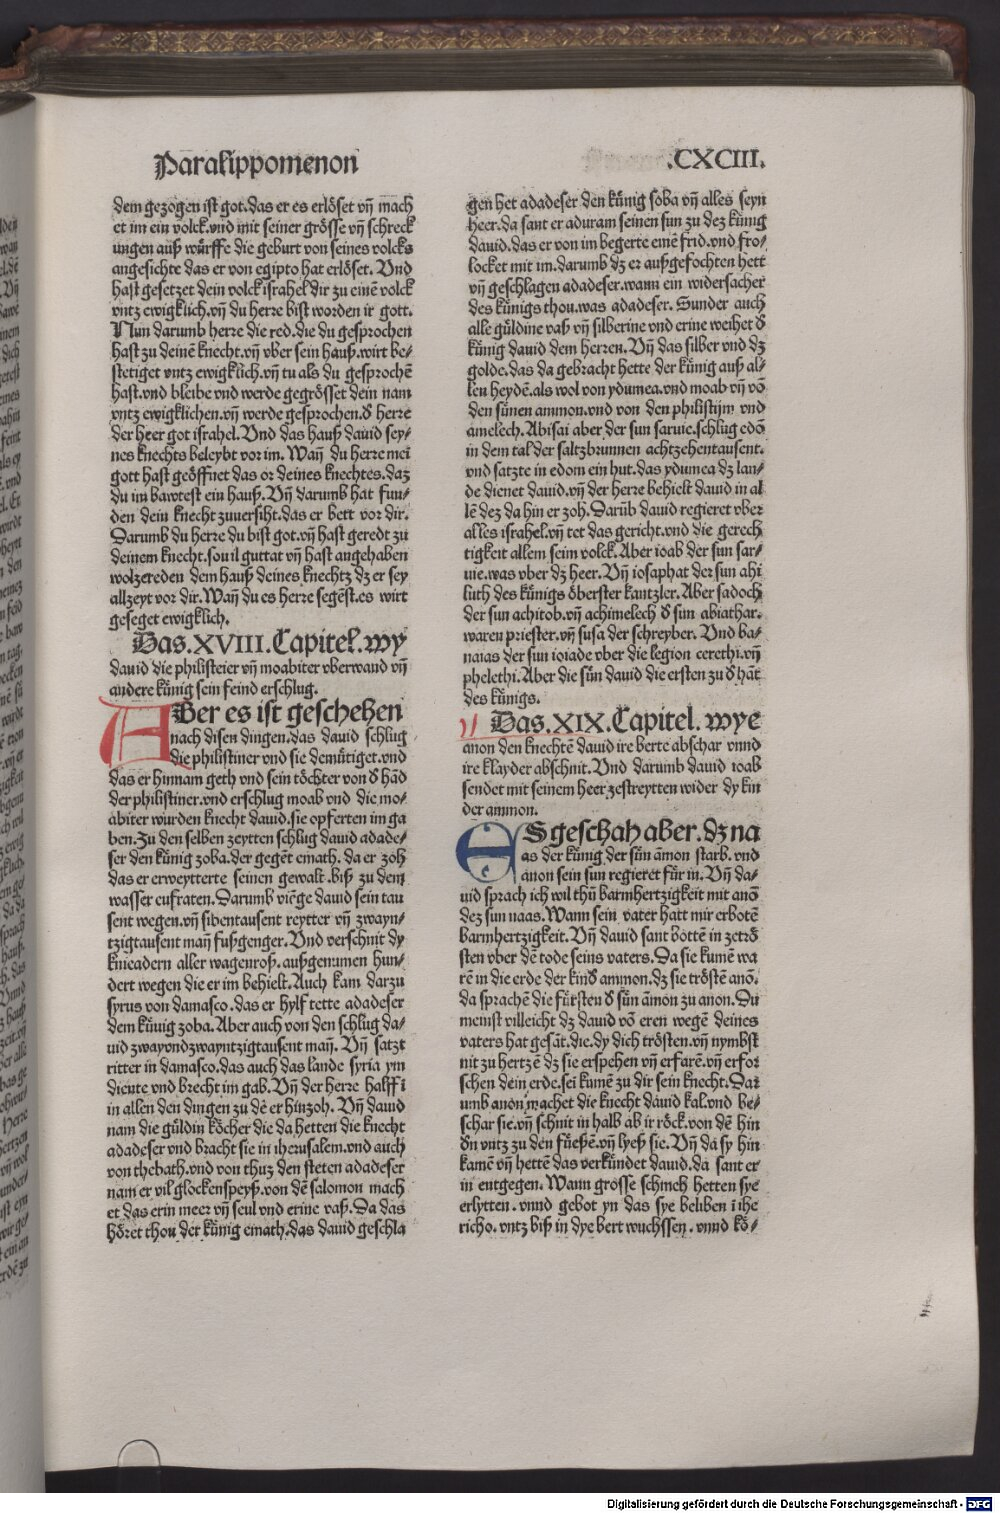 Paralippomenon
.CXCIII.
dem gezogen ist got.das er es erlöset vñ mach
et im ein volck.vnd mit seiner grösse vñ schreck
ungen auß würffe die geburt von seines volcks
angesichte das er von egipto hat erlöset. Vnd
hast gesetzet dein volck israhel dir zu einē volck
vntz ewigklich.vñ du herre bist worden ir gott.
Nun darumb herre die red.die du gesprochen
hast zu deinē knecht.vñ vber sein hauß.wirt be⸗
stetiget vntz ewigklich.vñ tu als du gesprochē
hast.vnd bleibe vnd werde gegrösset dein nam
vntz ewigklichen.vñ werde gesprochen.d̕ herre
der heer got israhel. Vnd das hauß dauid sey⸗
nes knechts beleybt vor im. Wañ du herre mei
gott hast geöffnet das or deines knechtes.daz
du im bawtest ein hauß. Vñ darumb hat fun⸗
den dein knecht zuuersiht.das er bett vor dir.
Darumb du herre du bist got.vñ hast geredt zu
deinem knecht.souil guttat vñ hast angehaben
wolzereden dem hauß deines knechtz dz er sey
allzeyt vor dir. Wañ du es herre segēst.es wirt
geseget ewigklich.
Das.XVIII.Capitel.wy
dauid die philisteier vñ moabiter vberwand vñ
andere künig sein feind erschlug.
ABer es ist geschehen
nach disen dingen.das dauid schlug
die philistiner vnd sie demütiget.vnd
das er hinnam geth vnd sein töchter von d̕ hād
der philistiner.vnd erschlug moab vnd die mo⸗
abiter wurden knecht dauid.sie opferten im ga
ben.Zu den selben zeytten schlug dauid adade⸗
ser den künig zoba.der gegēt emath. da er zoh
das er erweytterte seinen gewalt.biß zu dem
wasser eufraten. Darumb viēge dauid sein tau
sent wegen.vñ sibentausent reytter vñ zwayn⸗
tzigtausent mañ fußgenger. Vnd verschnit dy
knieadern aller wagenroß.außgenumen hun⸗
dert wegen die er im behielt. Auch kam darzu
syrus von damasco.das er hylf tette adadeser
dem künig zoba. Aber auch von den schlug da⸗
uid zwayvndzwayntzigtausent mañ. Vñ satzt
ritter in damasco.das auch das lande syria ym
diente vnd brecht im gab. Vñ der herre halff ī
in allen den dingen zu dē er hinzoh. Vñ dauid
nam die güldin köcher die da hetten die knecht
adadeser vnd bracht sie in iherusalem.vnd auch
von thebath.vnd von thuz den steten adadeser
nam er vil glockenspeyß.von dē salomon mach
et das erin meer vñ seul vnd erine vaß. Da das
höret thou der künig emath.das dauid geschla
gen het adadeser den künig soba vñ alles seyn
heer.da sant er aduram seinen sun zu dez künig
dauid.das er von im begerte einē frid.vnd fro⸗
locket mit im.darumb dz er außgefochten hett
vñ geschlagen adadeser.wann ein widersacher
des künigs thou.was adadeser. Sunder auch
alle güldine vaß vñ silberine vnd erine weihet d̕
künig dauid dem herren. Vñ das silber vnd dz
golde.das da gebracht hette der künig auß al⸗
len heydē.als wol von ydumea.vnd moab vñ vō
den sünen ammon.vnd von den philistijm vnd
amelech. Abisai aber der sun saruie.schlug edō
in dem tal der saltzbrunnen achtzehentausent.
vnd satzte in edom ein hut.das ydumea dz lan⸗
de dienet dauid.vñ der herre behielt dauid in al
lē dez da hin er zoh. Darüb dauid regieret vber
alles israhel.vñ tet das gericht.vnd die gerech
tigkeit allem seim volck. Aber ioab der sun sar⸗
uie.was vber dz heer. Vñ iosaphat der sun ahi
luth des künigs öberster kantzler. Aber sadoch
der sun achitob.vñ achimelech d̕ sun abiathar.
waren priester.vñ susa der schreyber. Vnd ba⸗
naias der sun ioiade vber die legion cerethi.vñ
phelethi. Aber die sün dauid die ersten zu d̕ hāt
des künigs.
Das.XIX.Capitel. wye
anon den knechtē dauid ire berte abschar vnnd
ire klayder abschnit. Vnd darumb dauid ioab
sendet mit seinem heer zestreytten wider dy kin
der ammon.
ES geschah aber.dz na
as der künig der sün āmon starb.vnd
anon sein sun regieret für in. Vñ da⸗
uid sprach ich wil thū barmhertzigkeit mit anō
dez sun naas. Wann sein vater hatt mir erbotē
barmhertzigkeit. Vñ dauid sant bottē in zetrö
sten vber dē tode seins vaters. Da sie kumē wa
rē in die erde der kind̕ ammon.dz sie tröstē anō.
da sprachē die fürsten d̕ sün āmon zu anon. Du
meinst villeicht dz dauid vō eren wegē deines
vaters hat gesāt.die.dy dich trösten.vñ nymbst
nit zu hertzē dz sie erspehen vñ erfarē.vñ erfor
schen dein erde.sei kumē zu dir sein knecht. Dar
umb anon machet die knecht dauid kal.vnd be⸗
schar sie.vñ schnit in halb ab ir röck.von dē hin
d̕n vntz zu den füeßē.vñ lyeß sie. Vñ da sy hin
kamē vñ hettē das verkündet dauid.da sant er
in entgegen. Wann grosse schmeh hetten sye
erlytten.vnnd gebot yn das sye beliben ī ihe
richo.vntz biß in dye bert wuchssen.vnnd kö⸗
Digitalisierung gefördert durch die Deutsche Forschungsgemeinschaft - DFG